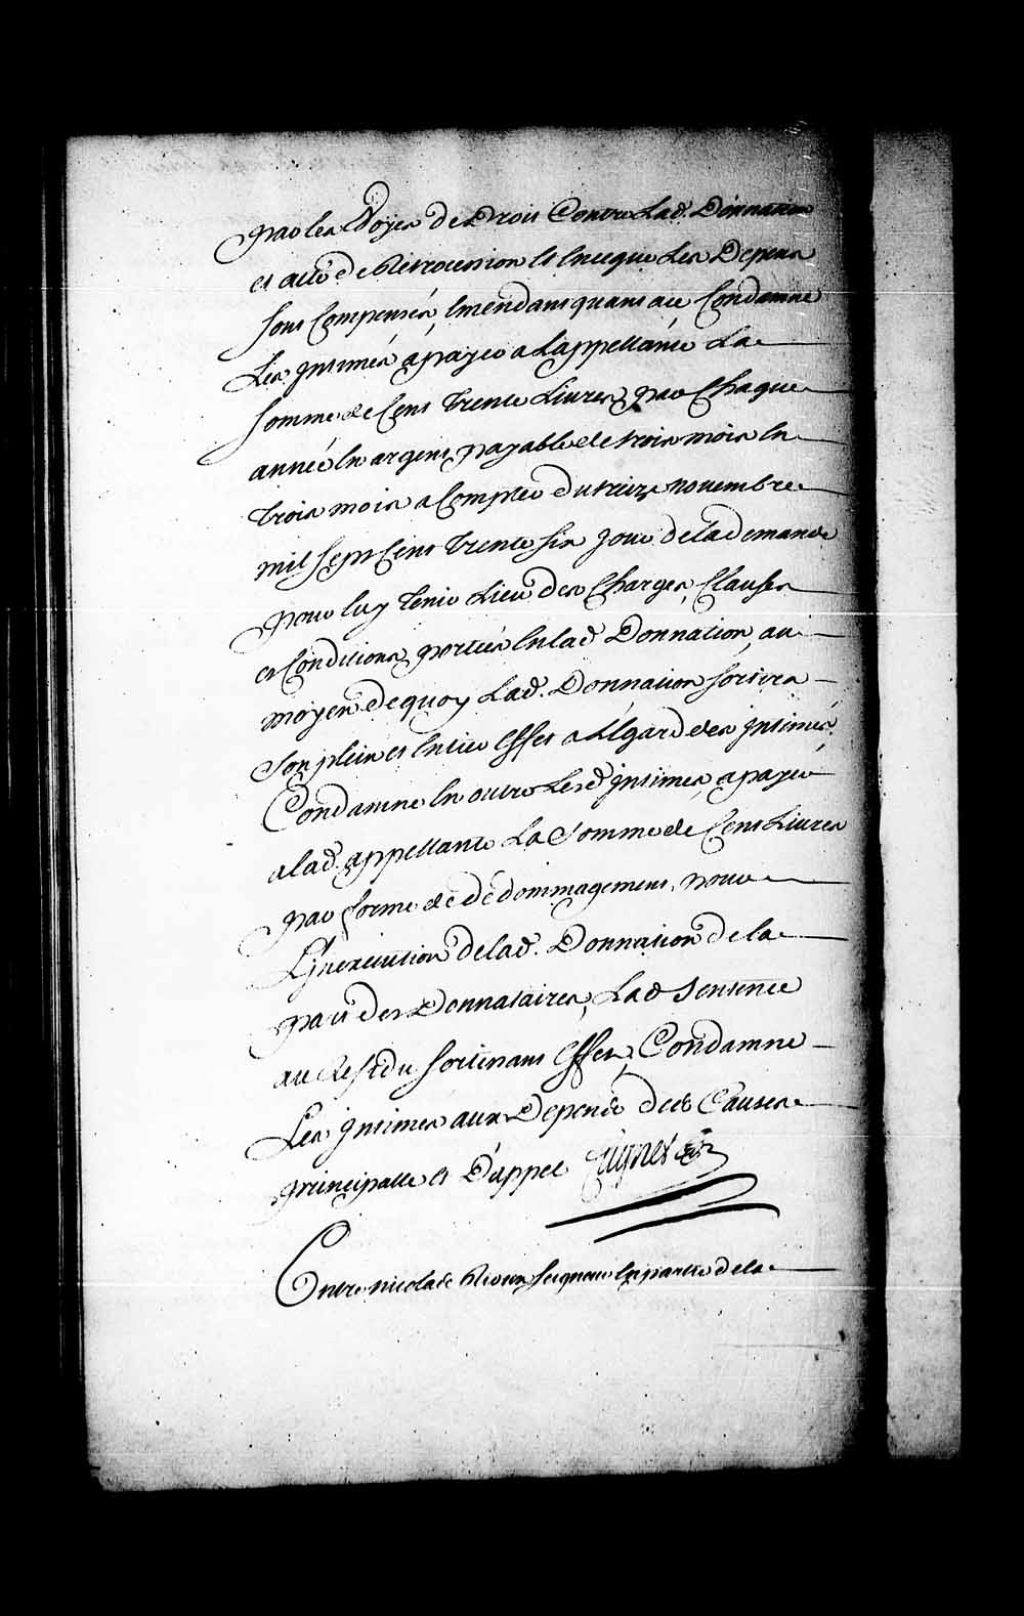 par les Voyes de Droit Contre Lad. Donnation
et acte de Retrocession Et Enceque Les Depens
sont Compensés, Emendant quant ace Condamne
Les Intimés apayer a Lappellante La
somme de Cent Trente Livres par Chaque
année En argent payable de trois mois En
Trois mois a Compter du treize novembre
mil sept Cent Trente six Jour de la demande
pour luy Tenir Lieu des Charges, Clauses
et Conditions portées En lad Donnation, au
moyen dequoy Lad. Donnation sortira
son plein et Entier Effet a L'Egard des Intimés.
Condamne En outre Lesd Intimés, apayer
a lad. appellante La somme de Cent Livres
par forme de dédommagement, pour
L'Inexecution de lad. Donnation de la
part des Donnataires, Lad sentence
au Residu sortissant Effet, Condamne
Les Intimés aux Depens des Causes
principalle et D'appel Cugnet
Entre nicolas Rioux seigneur En partie de la